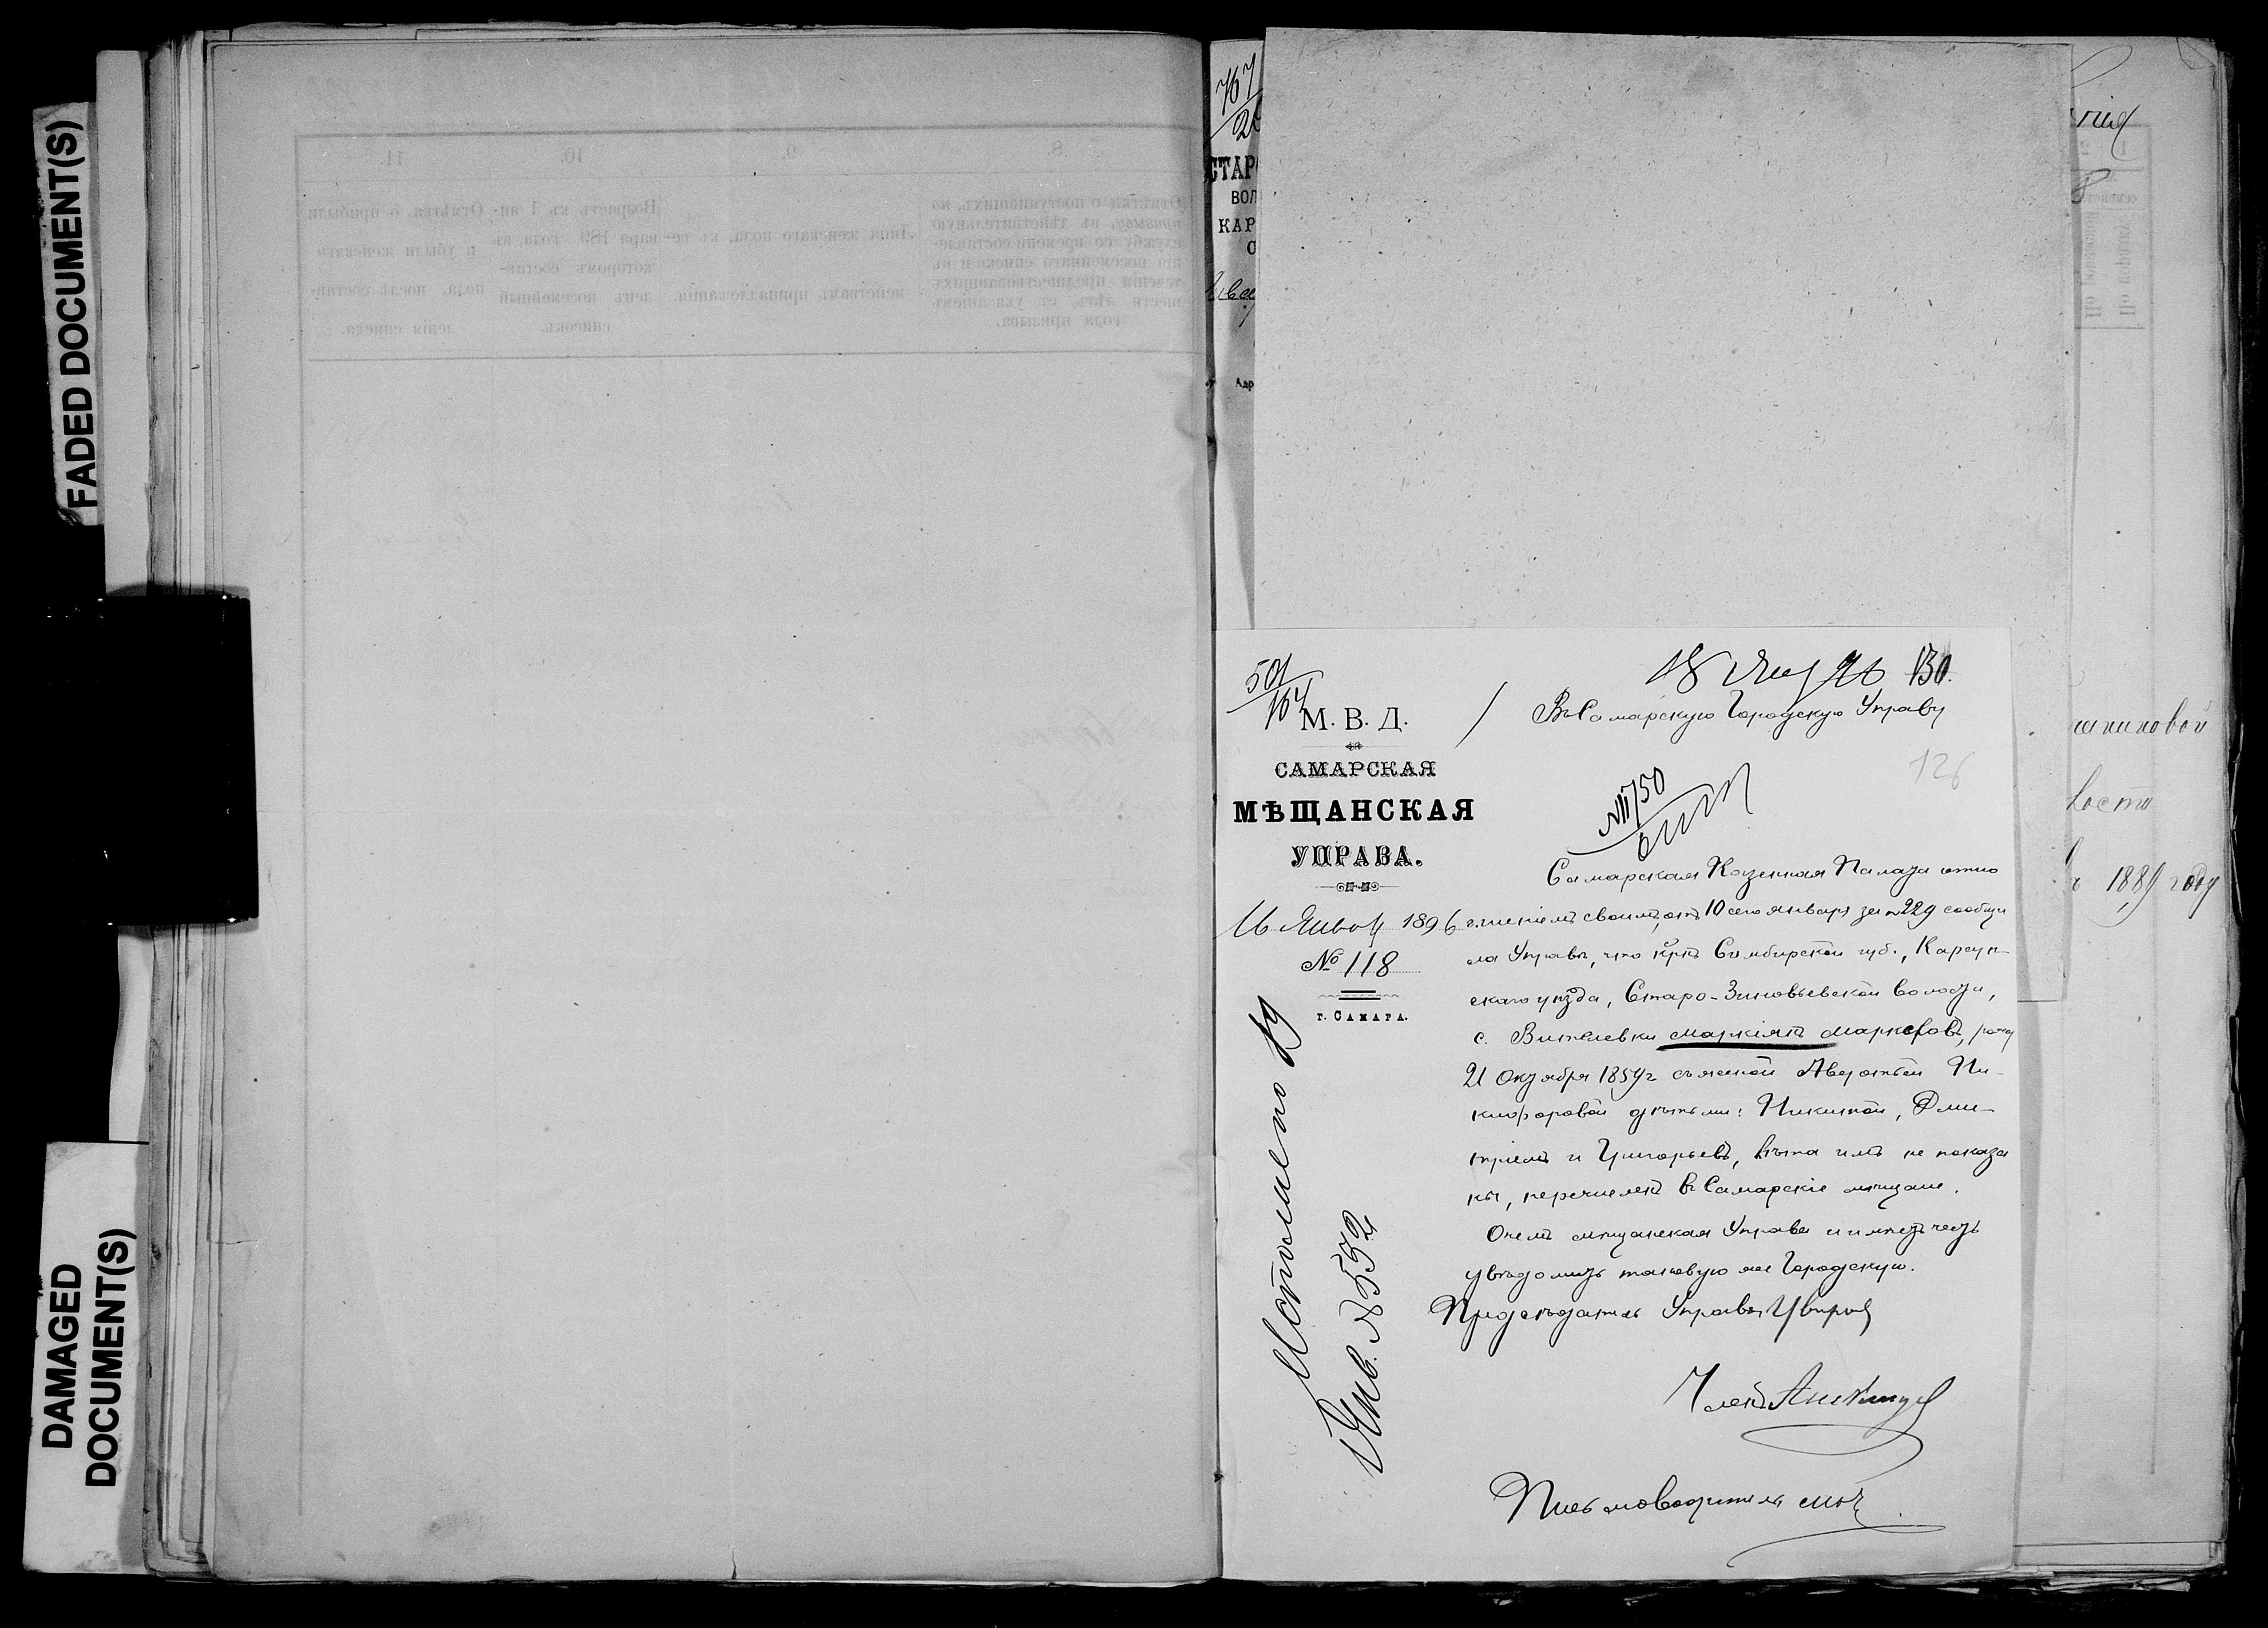 FADED DOCUMENT(S)
DAMAGED
DOCUMENT(S)
8.
9.
10.
11.
Отмѣтки о поступившихъ, по
призыву, въ дѣйствительную
службу со времени составле-
нія посемейнаго списка и въ
теченіи предшествовавшихъ
шести лѣтъ, съ указаніемъ
года призыва.
Лица женскаго пола, къ се-
мействамъ принадлежащія.
Возрастъ къ 1 ян-
варя 189 года, въ
которомъ состав-
ленъ посемейный
списокъ.
Отмѣтка о прибыли
и убыли женскаго
пола, послѣ состав-
ленія списка.
767
СТАР
ВОЛ
КАР
С
Адр
501
167
М. В. Д.
САМАРСКАЯ
МѢЩАНСКАЯ
УПРАВА.
16 Янвоя 1896
№ 118
г. САМАРА.
18 96 130.
Въ Самарскую Городскую Управу
126
Самарская Казенная Палата отно
шеніемъ своимъ, отъ 10 сего января за № 229 сообщи
ла Управѣ, что крнъ Симбирской губ., Карсун-
скаго уѣзда, Старо-Зиновьевской волости,
с. Вителевки Маркіянъ Маркеловъ, род
21 Октября 1859 г съ женой Авдотьей Ни-
кифоровой дѣтьми: Никитой, Дми-
тріемъ и Григорьевъ, лѣта имъ не показа
ны, перечисленъ въ Самарскіе мѣщане.
О чемъ мѣщанская Управа и имѣетъ честь
увѣдомить таковую же Городскую.
Предсѣдатель Управы
Членъ
Письмоводитель
Исполнено 19
Янв. № 552
волости
1889 году